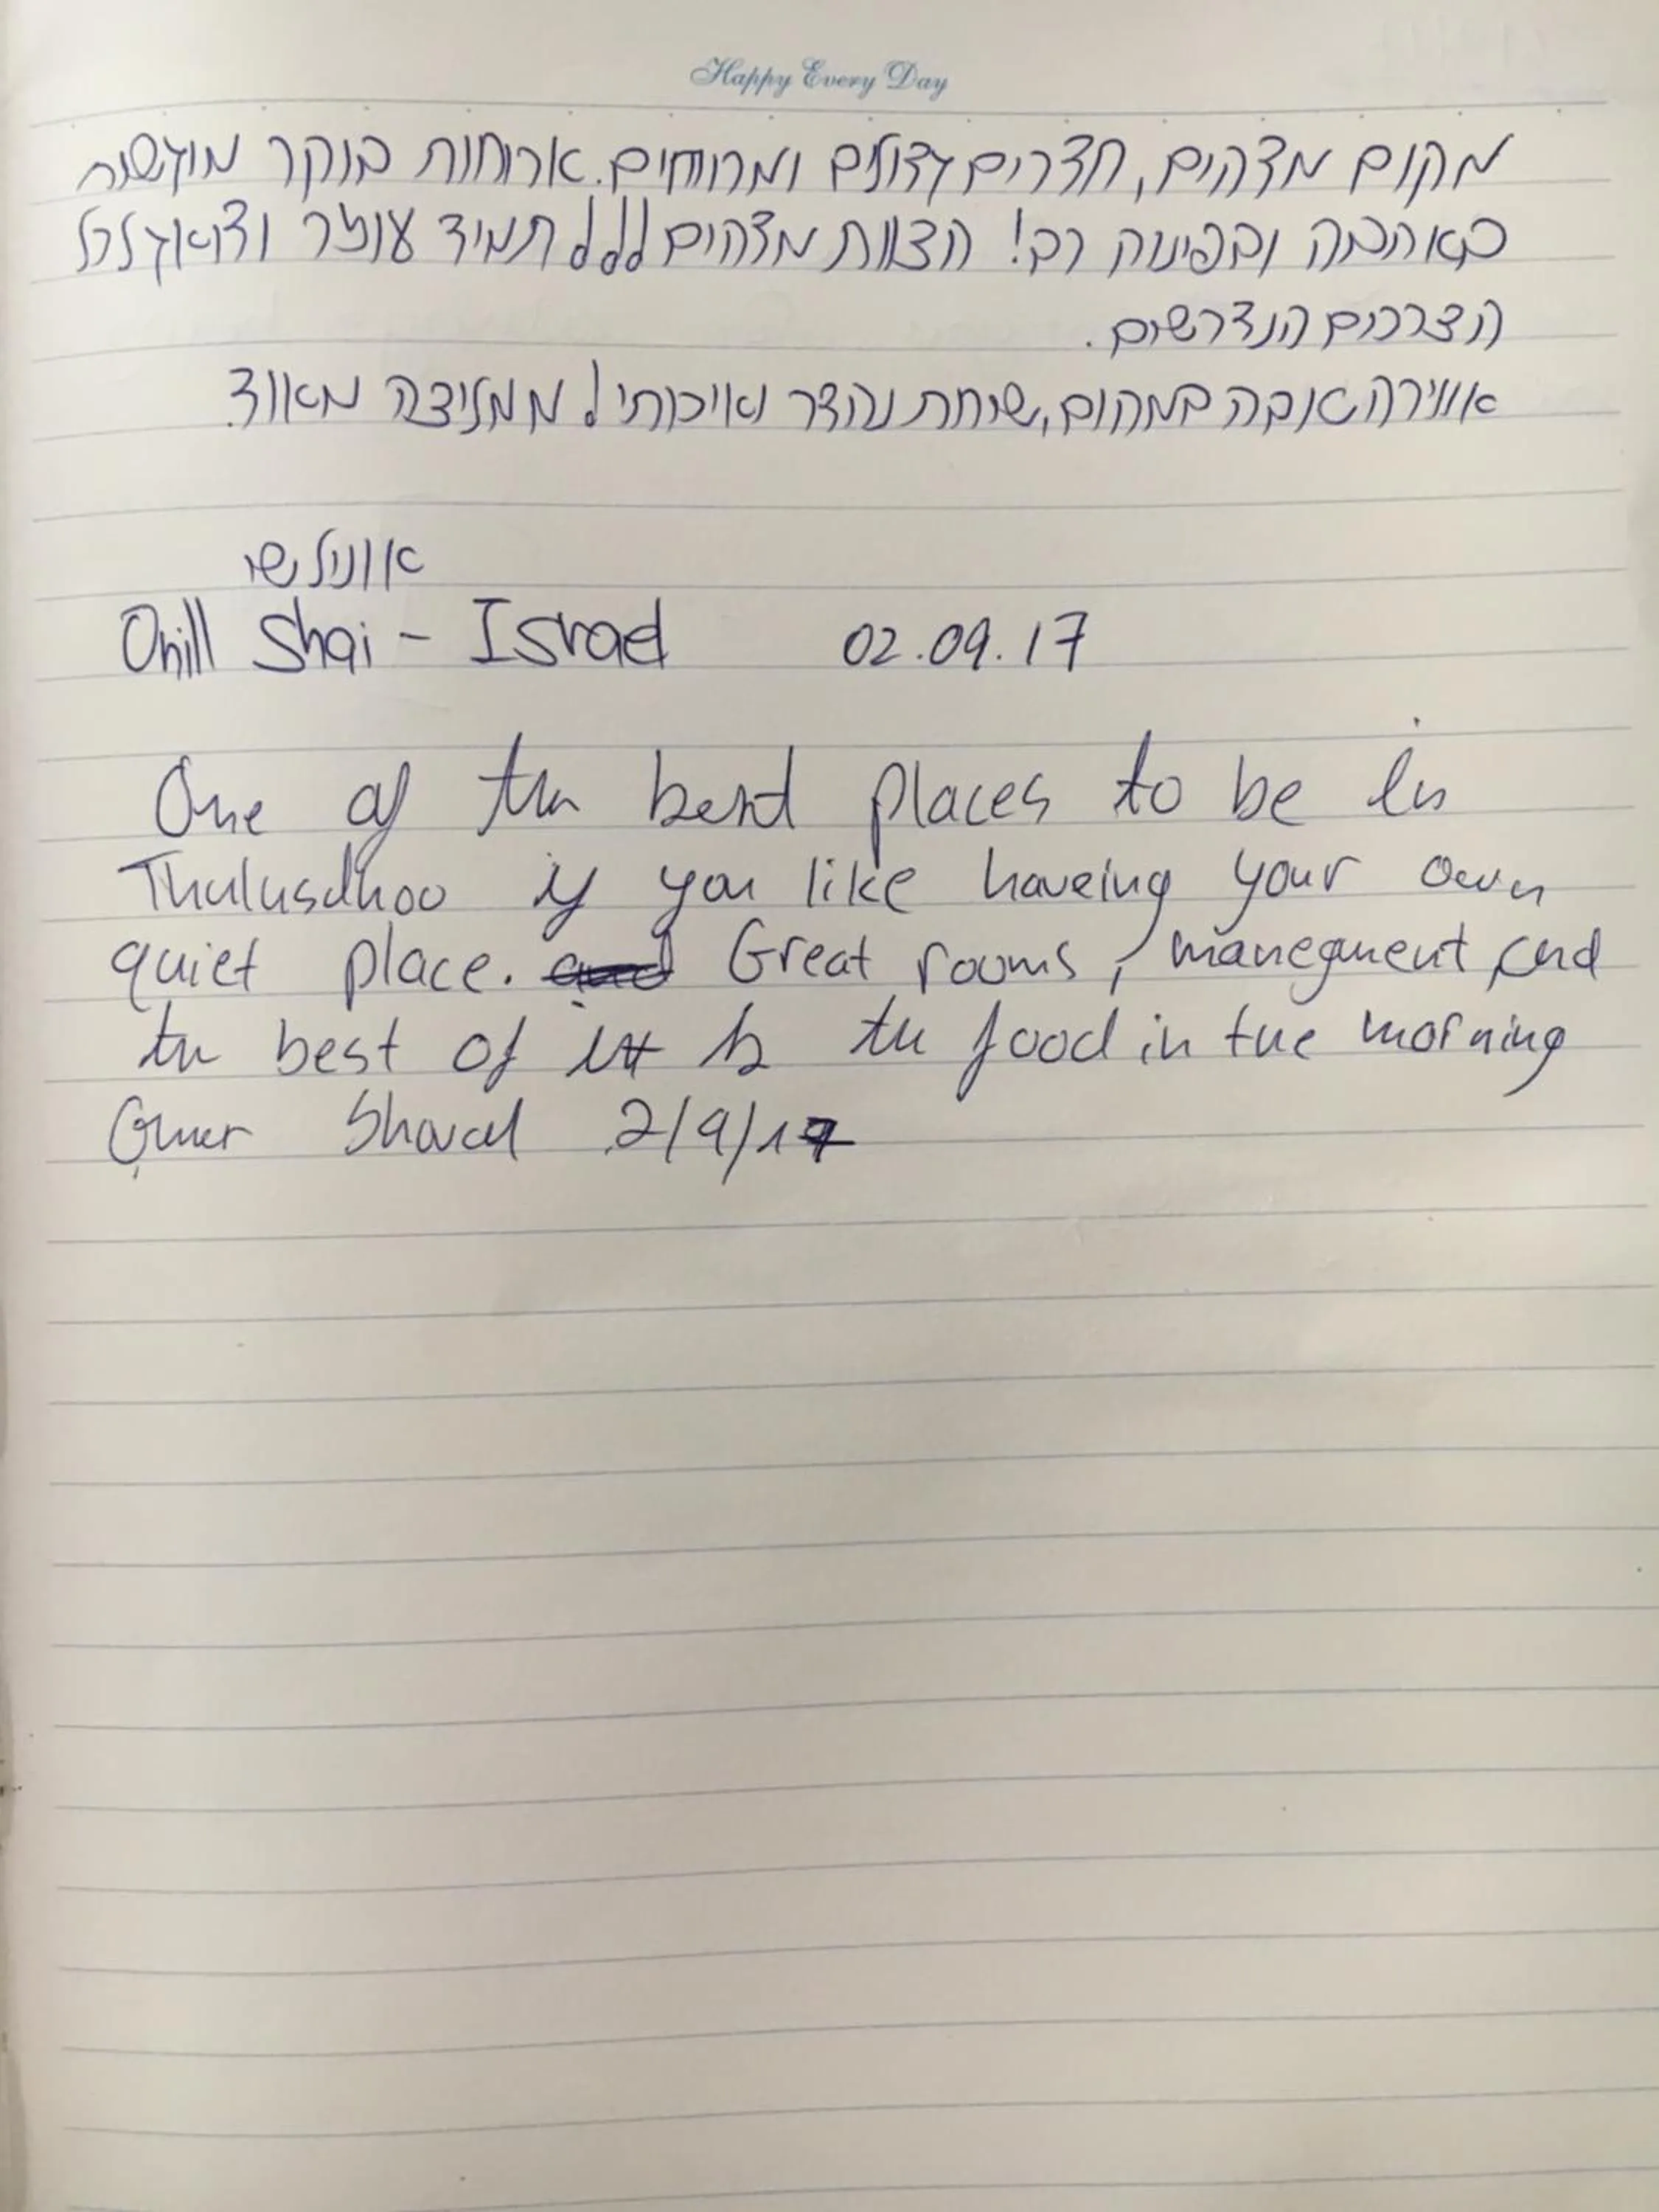 Happy Every Day
מקום מדהים, חדרים גדולים ומרווחים. ארוחות בוקר מוגשות
באהבה ובפינוק רב! הצוות מדהים!!! תמיד עוזר ודואג לכל
הצרכים הנדרשים.
אווירה טובה במקום, שירות נהדר ואיכותי! ממליצה מאוד.
שי
Shai - Israel 02.09.17
One of the best places to be in
Thulusdhoo if you like haveing your own
quiet place. and Great rooms, manegment and
the best of it is the food in the morning
Omer 2/9/17